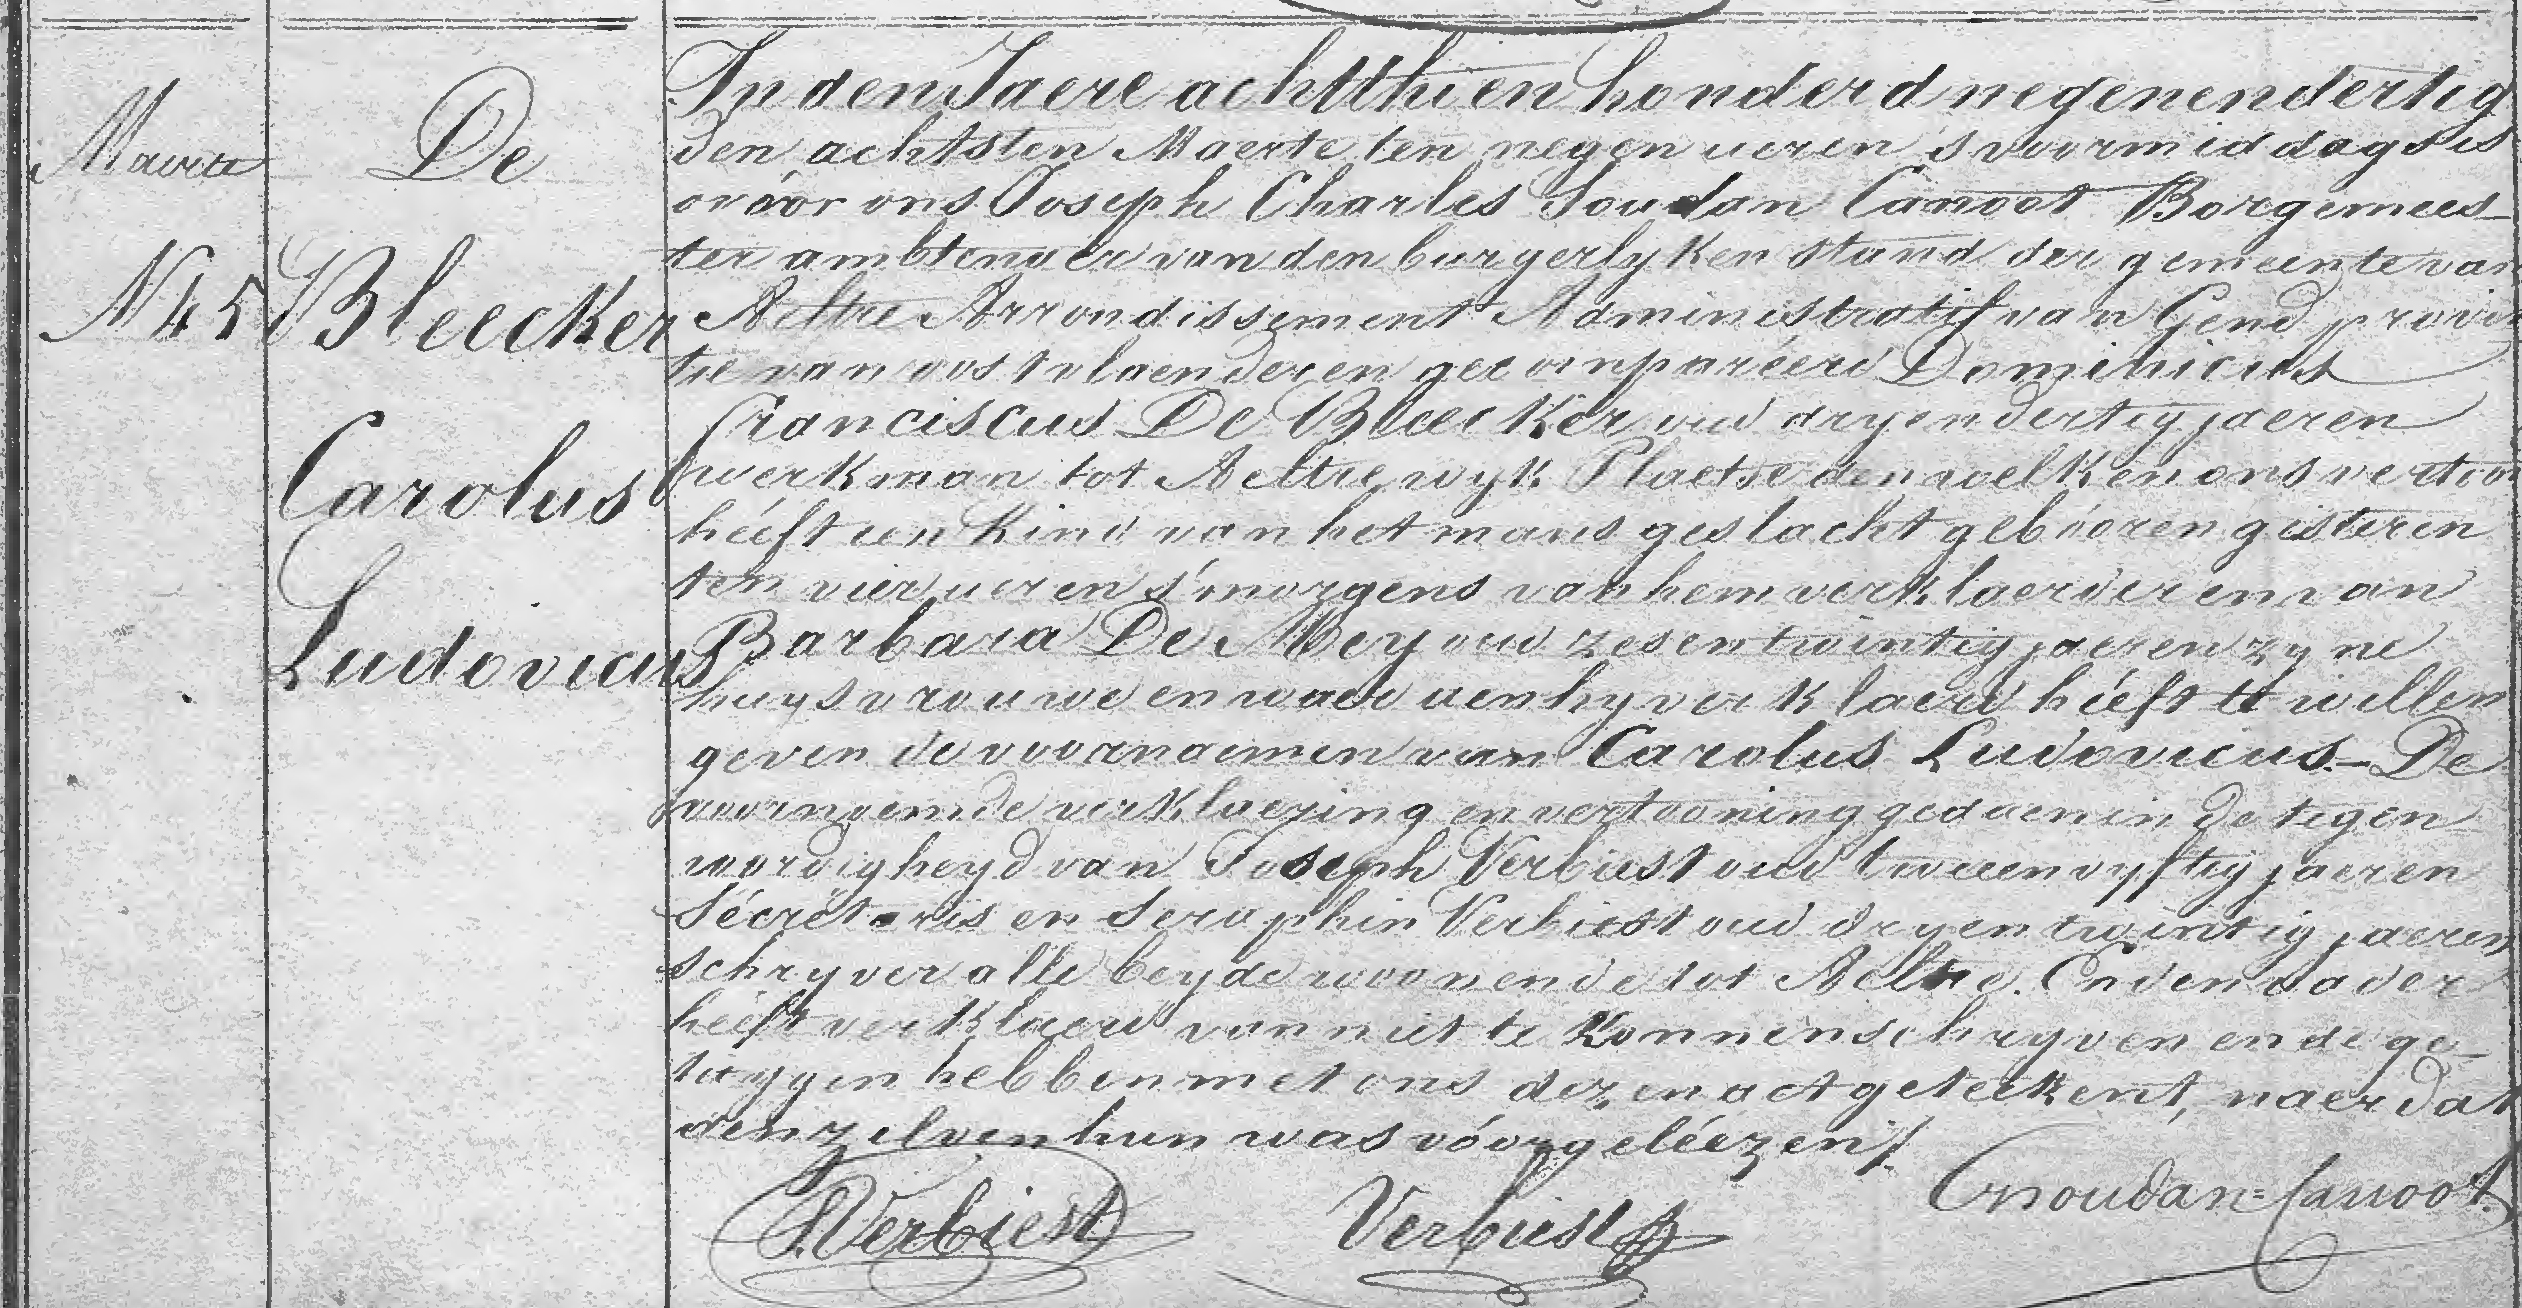 Maerte
N 45
De
Bleecker
Carolus
Ludovicus
In den Jaere achtthien honderd negenendertig
den achtsten Maerte ten negen ueren s'voormiddags is
voóor ons Joseph Charles Soudan Canoot Borgemees-
ter ambtenaer van den burgerlyken stand der gemeente van
Aeltre Arrondissement Administratif van Gend provin
tie van oostvlaenderen gecompareérd Dominicus
Franciscus De Bleecker oud dryendertig jaeren
werkman tot Aeltre wyk Plaetse den welken ons vertoon
heéft een Kind van het mans geslacht gebóoren gisteren
ten vier ueren s'morgens van hem verklaerder en van
Barbara De Mey oud zesentwintig jaeren zyne
huysvrouwe en waer aen hy verklaerd heéft te willen
geven de voornaemen van Carolus Ludovicus - De
voornoemde verklaering en vertooning gedaen in de tegen
woordigheyd van Joseph Verbiest oud tweeenvyftig jaeren
Sécrétaris en Seraphin Verbiest oud dryentwintig jaeren
schryver alle beyde woonende tot Aeltre. En den vader
heéft verklaerd van niet te konnen schryven en de ge-
tuygen hebben met ons dezen act geteekent, naer dat
den zelven hun was vóorgeléezen /.
S. Verbiest Verbiest Csoudan=Canoot